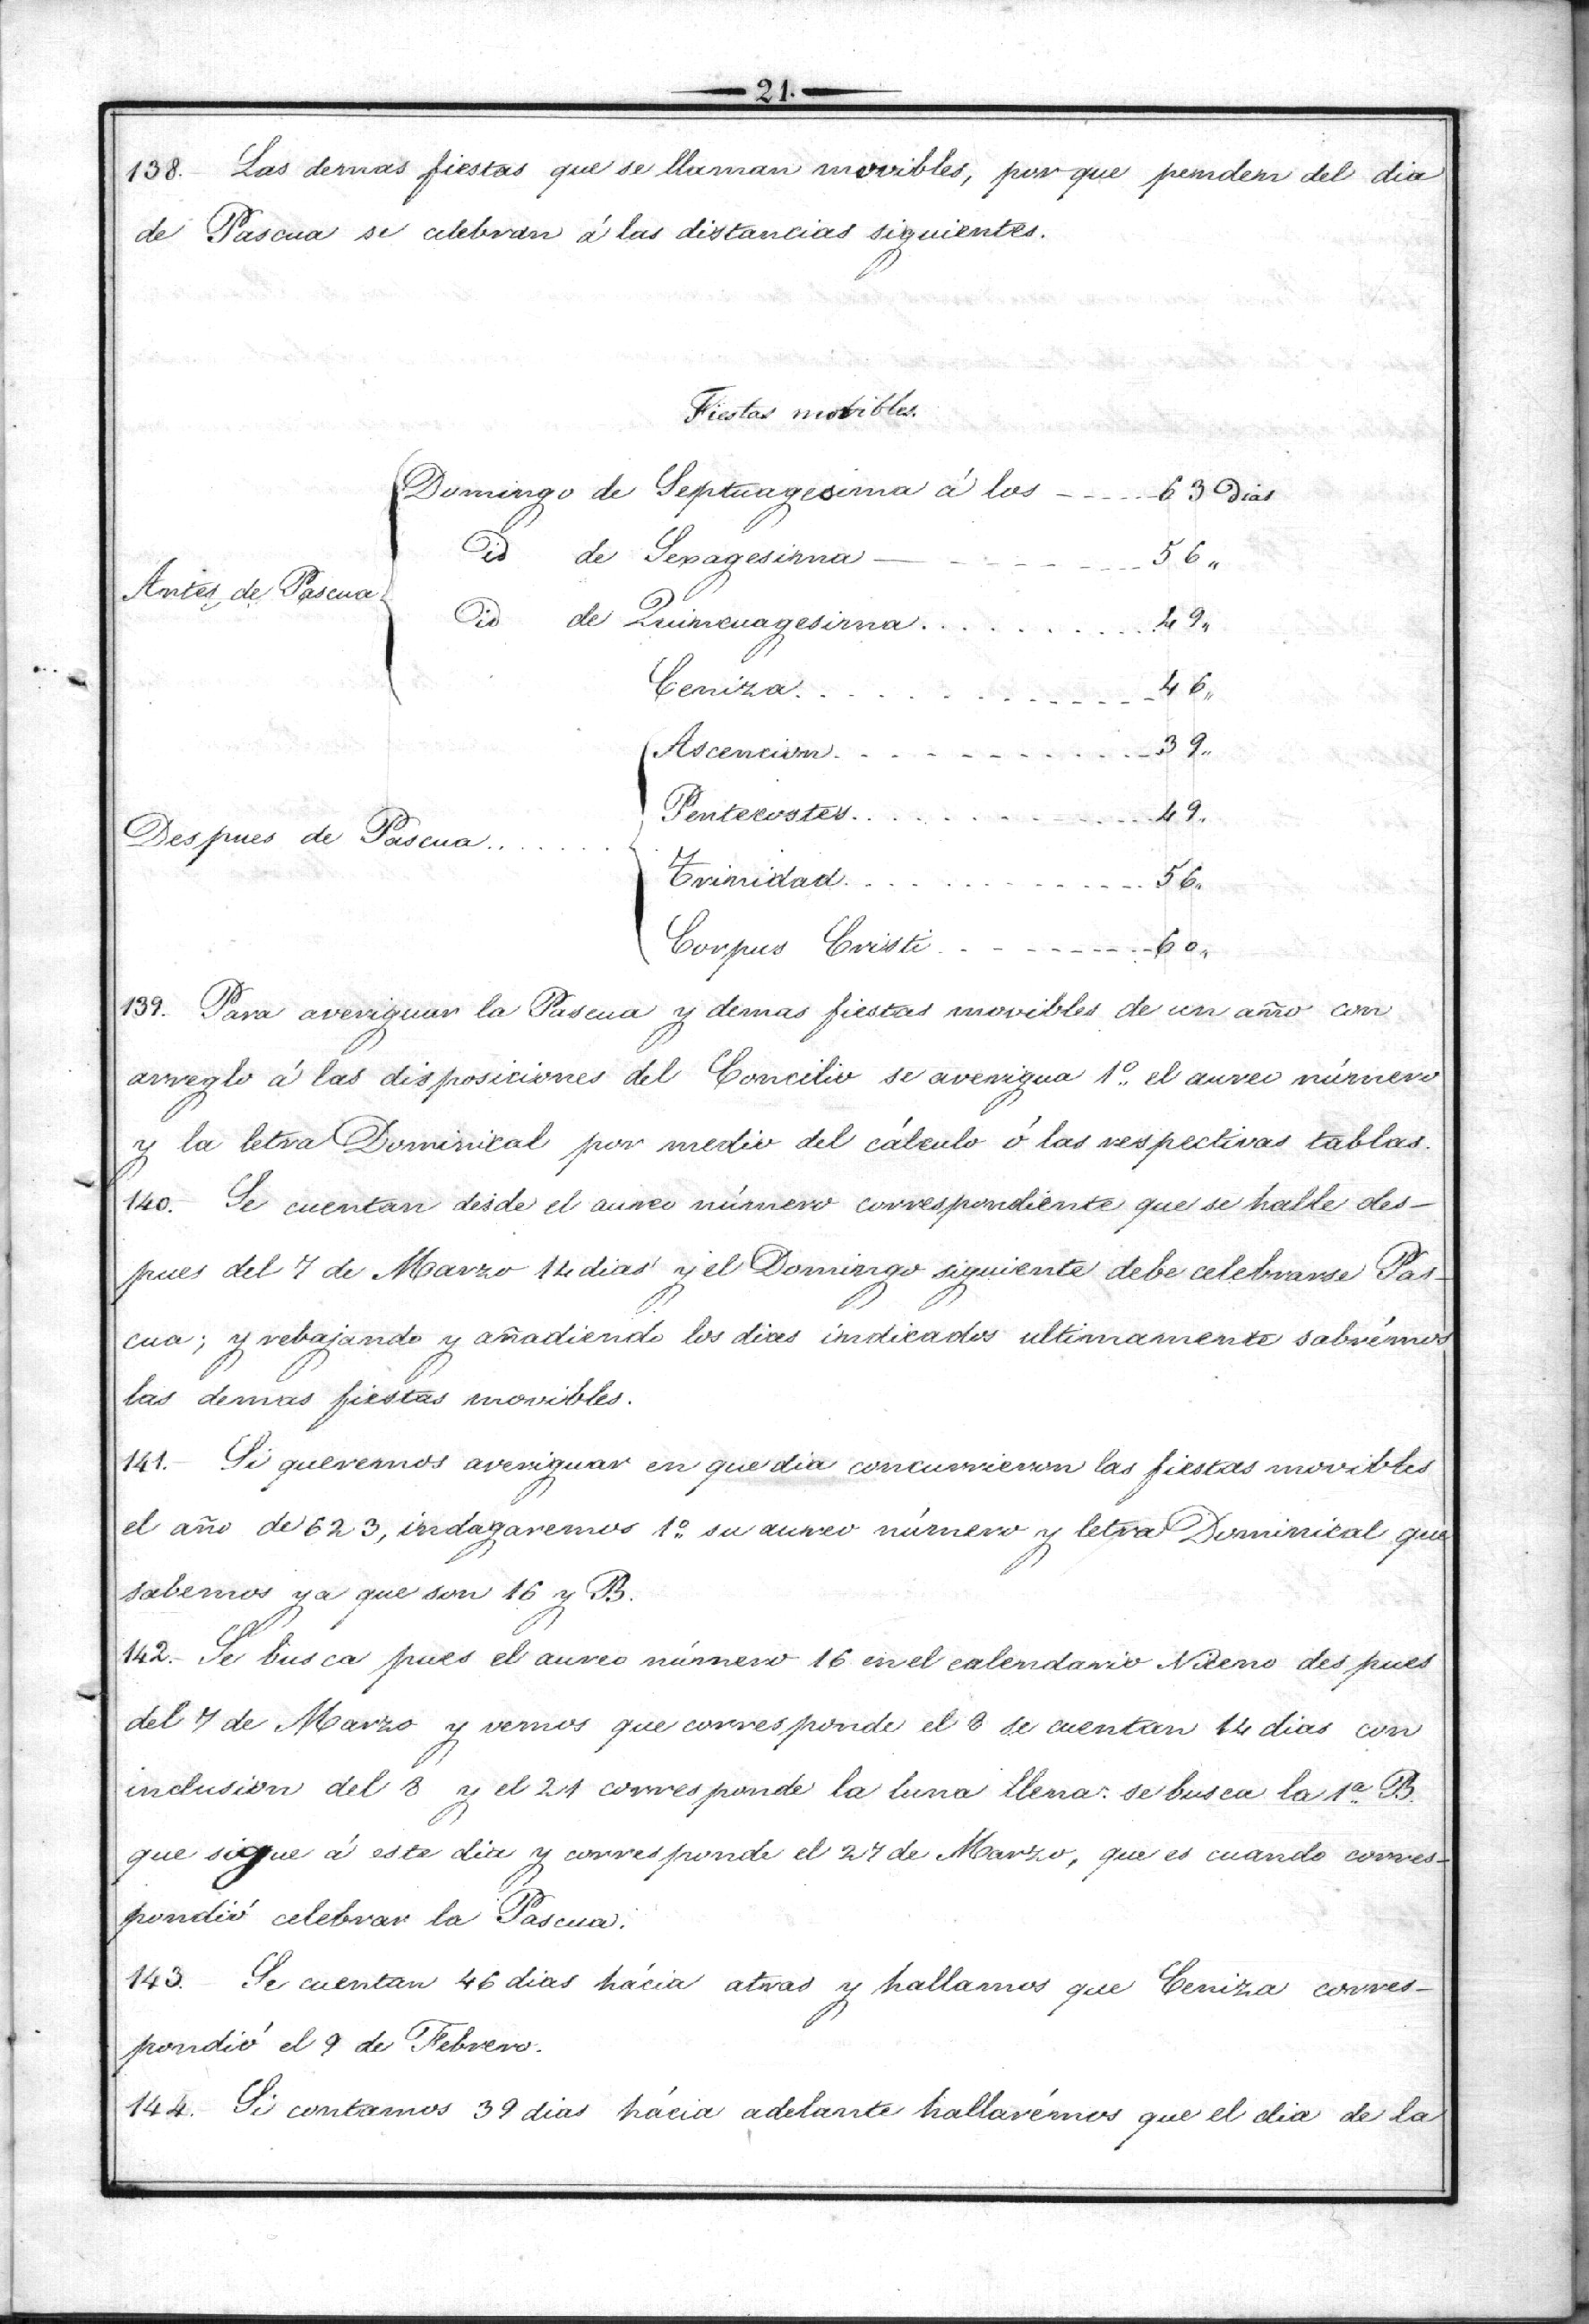 21.
138. Las demas fiestas que se llaman movibles, por que penden del dia
de Pascua se celebran á las distancias siguientes.
Fiestas movibles.
Antes de Pascua
Domingo de Septuagesima á los ----- 63 Dias
Id de Sexagesima — ------- 56 „
Id de Quincuagesima .......... 49 „
Ceniza ............ 46 „
Despues de Pascua ........
Ascencion ............ 39 „
Pentecostes ............ 49 „
Trinidad ............ 56 „
Corpus Cristi ---------- 60 „
139. Para averiguar la Pascua y demas fiestas movibles de un año con
arreglo á las disposiciones del Concilio se averigua 1º el aureo número
y la letra Dominical por medio del cálculo ó las respectivas tablas.
140. Se cuentan desde el aureo número correspondiente que se halle des-
pues del 7 de Marzo 14 dias y el Domingo siguiente debe celebrarse Pas-
cua; y rebajando y añadiendo los dias indicados ultimamente sabrémos
las demas fiestas movibles.
141. Si queremos averiguar en que dia concurrieron las fiestas movibles
el año de 623, indagaremos 1º su aureo número y letra Dominical que
sabemos ya que son 16 y B.
142. Se busca pues el aureo número 16 en el calendario Niceno des pues
del 7 de Marzo y vemos que corresponde el 8 se cuentan 14 dias con
inclusion del 8 y el 21 corresponde la luna llena: se busca la 1ª B.
que sigue á este dia y corresponde el 27 de Marzo, que es cuando corres-
pondió celebrar la Pascua.
143. Se cuentan 46 dias hácia atras y hallamos que Ceniza corres-
pondió el 9 de Febrero.
144. Si contamos 39 dias hácia adelante hallarémos que el dia de la